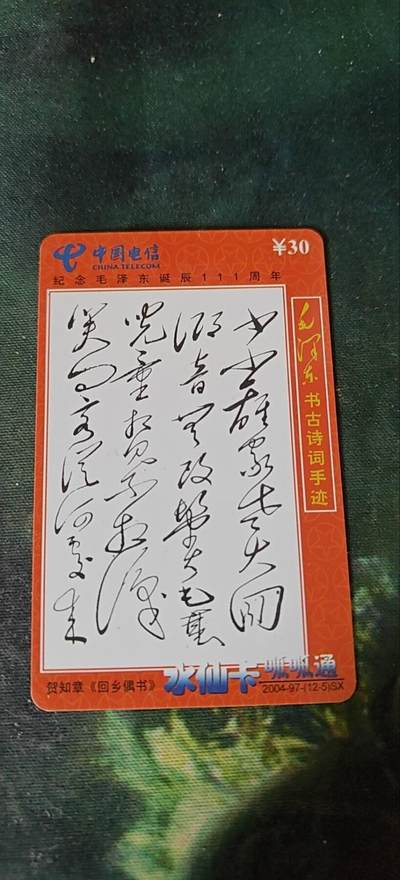 中国电信
CHINA TELECOM
¥30
纪念毛泽东诞辰111周年
毛泽东书古诗词手迹
少小離家老大回
鄉音無改鬢毛衰
兒童相見不相識
笑問客從何處來
贺知章《回乡偶书》
水仙卡 呱呱通
2004-97-(12-5)SX